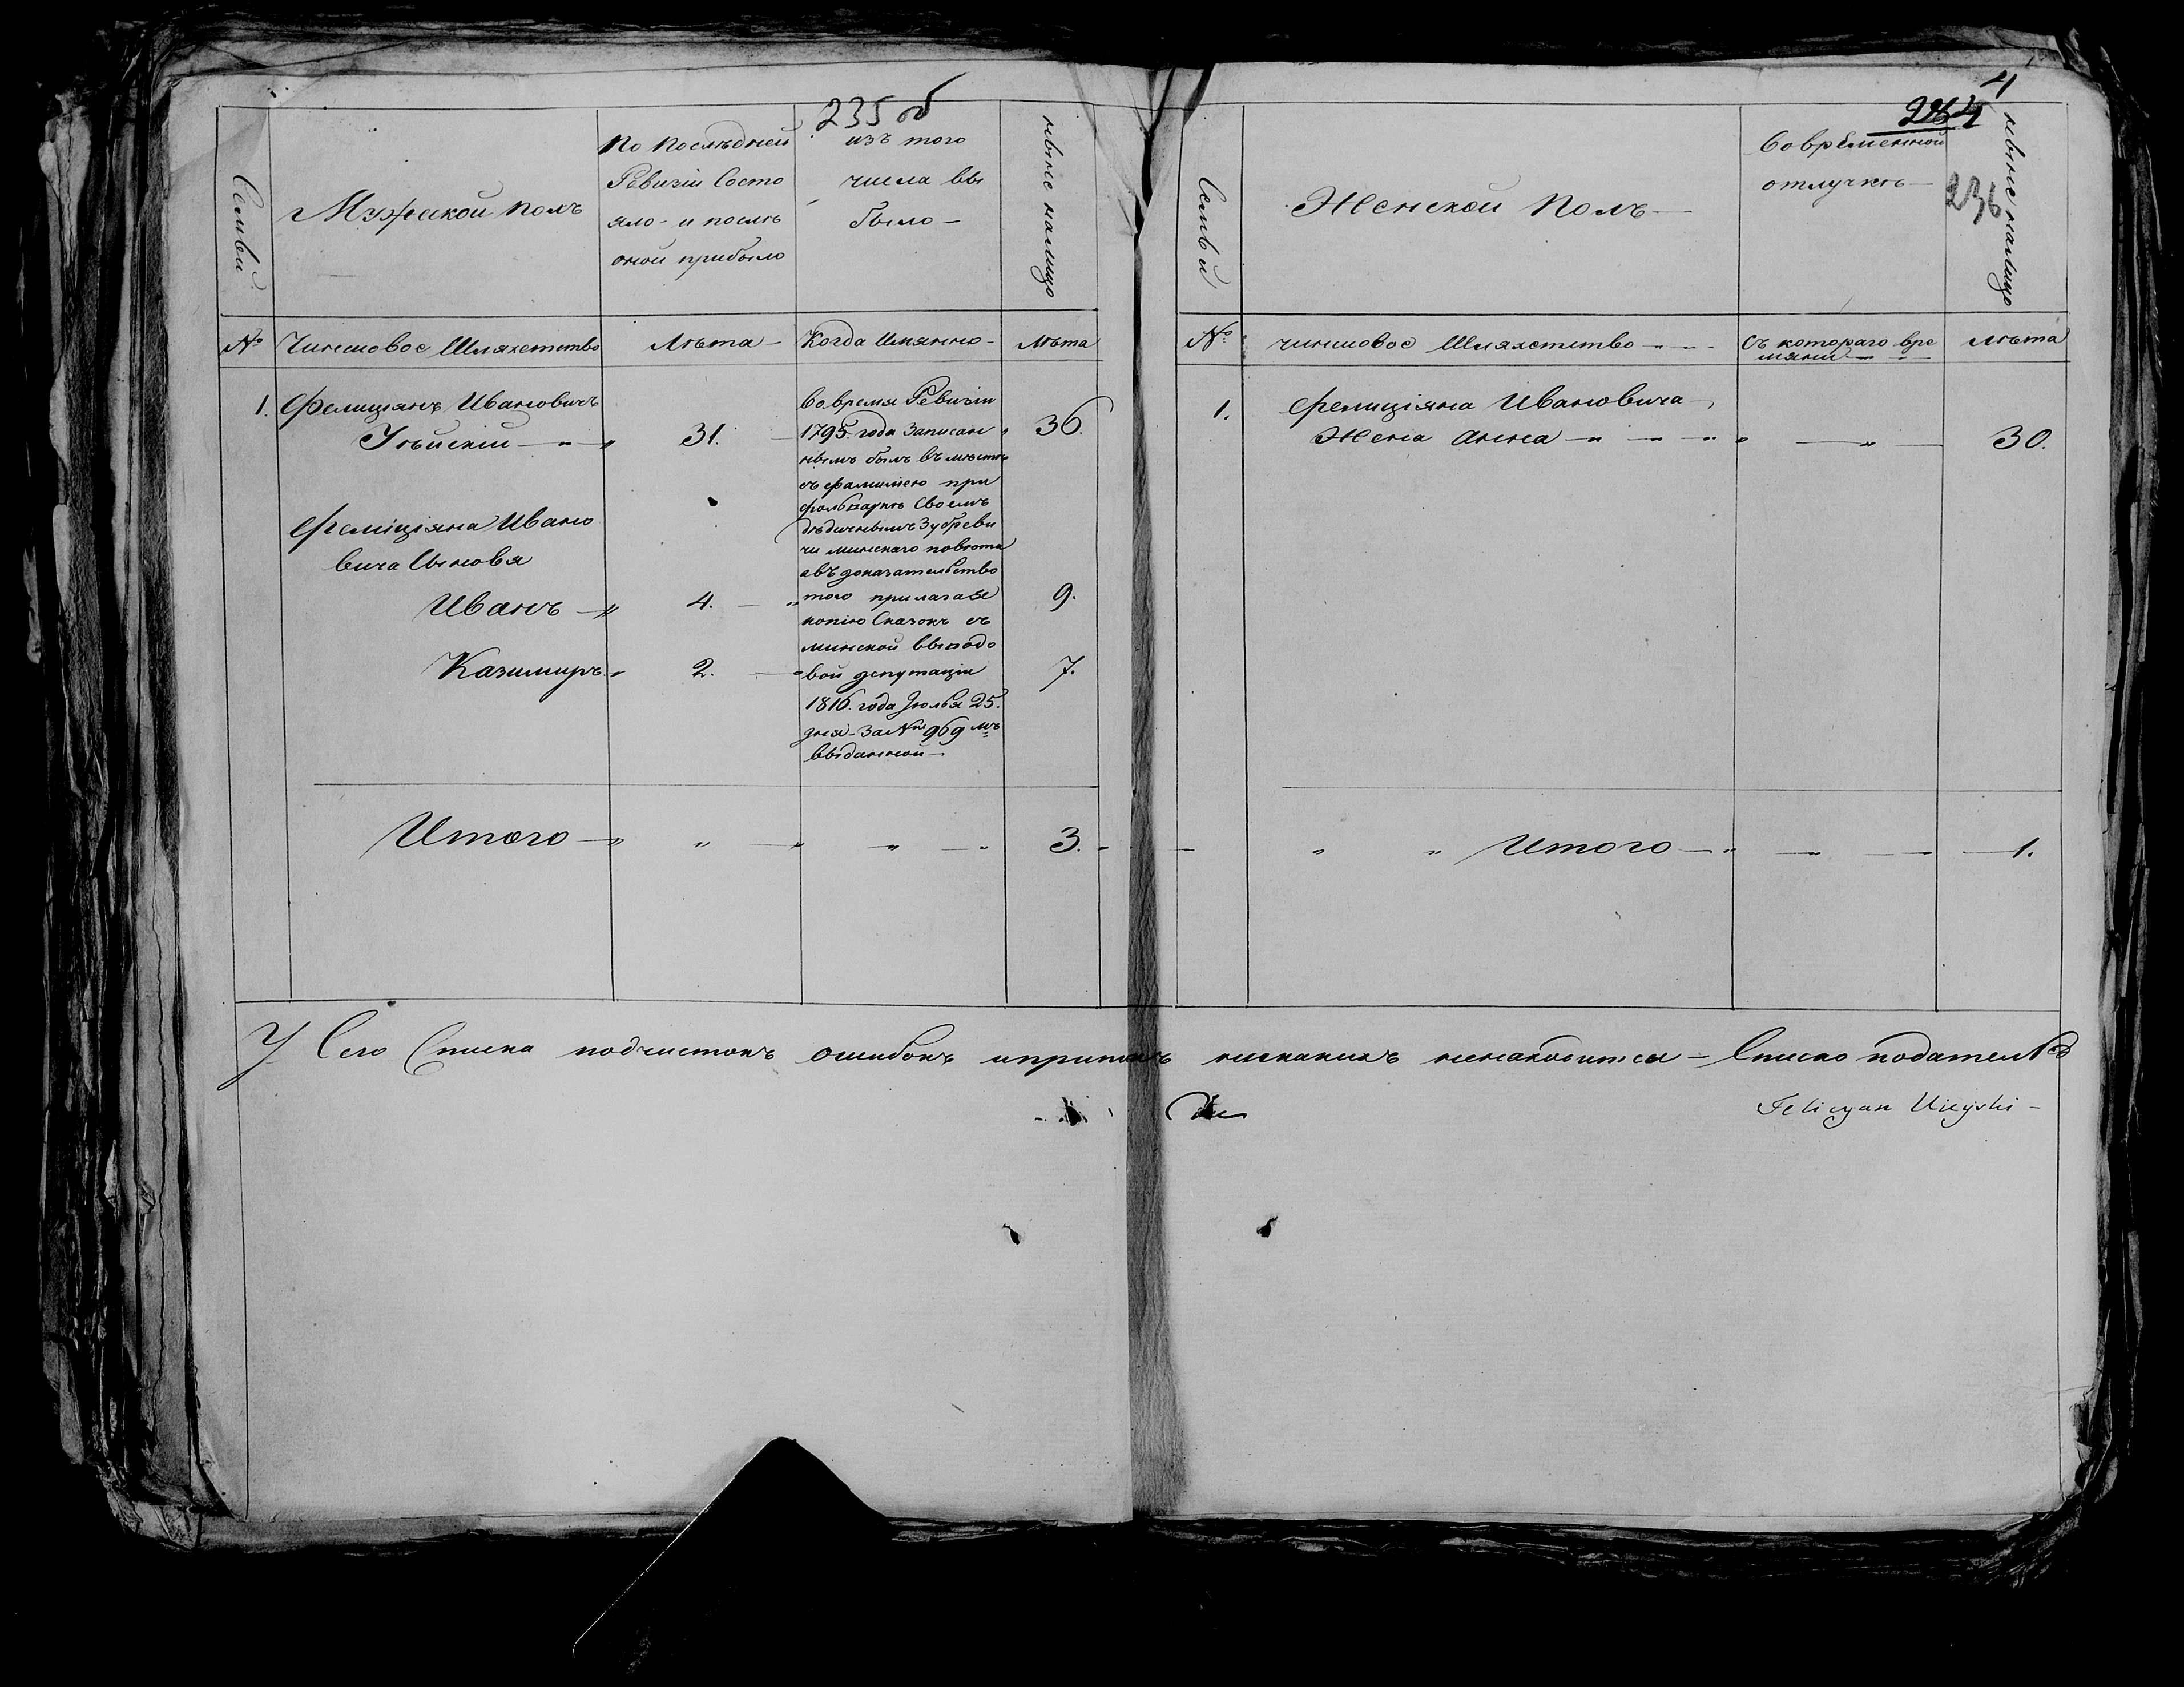 235 об
Семьи
Мужской полъ
По последней
Ревизіи Состо
яло - и после
оной прибыло
изъ того
числа вы
было -
ныне налицо
№
Чиншовое Шляхетство
Лѣта -
Когда Имянно -
Лѣта
1.
Фелиціянъ Ивановичъ
Уѣйскій
31.
36.
Во время Ревизіи
1795. года записан
нымъ былъ вместе
съ фамиліею при
фольварке Своемъ
дедичнымъ Зубреви
чи минскаго повета
авъ доказательство
того прилагае
копію Сказокъ съ
минской вывод
вой депутаціи
1816. года Іюля 25.
дня - за № 969 мъ
выданной -
Фелиціяна Ивано
вича Сыновя
Иванъ
4.
9.
Казимиръ
2.
7.
Итого
3.
4
236
Семьи
Женской Полъ -
Вовременной
отлучке -
ныне налицо
№
чиншовое Шляхетство
Съ котораго вре
мяни
Лѣта
1.
Фелиціяна Ивановича
Жена Анна
30.
Итого
1.
У Сего Списка подчистокъ ошибокъ иприписокъ никакихъ ненаходится - Списко податель
Felicyan Uieyski -